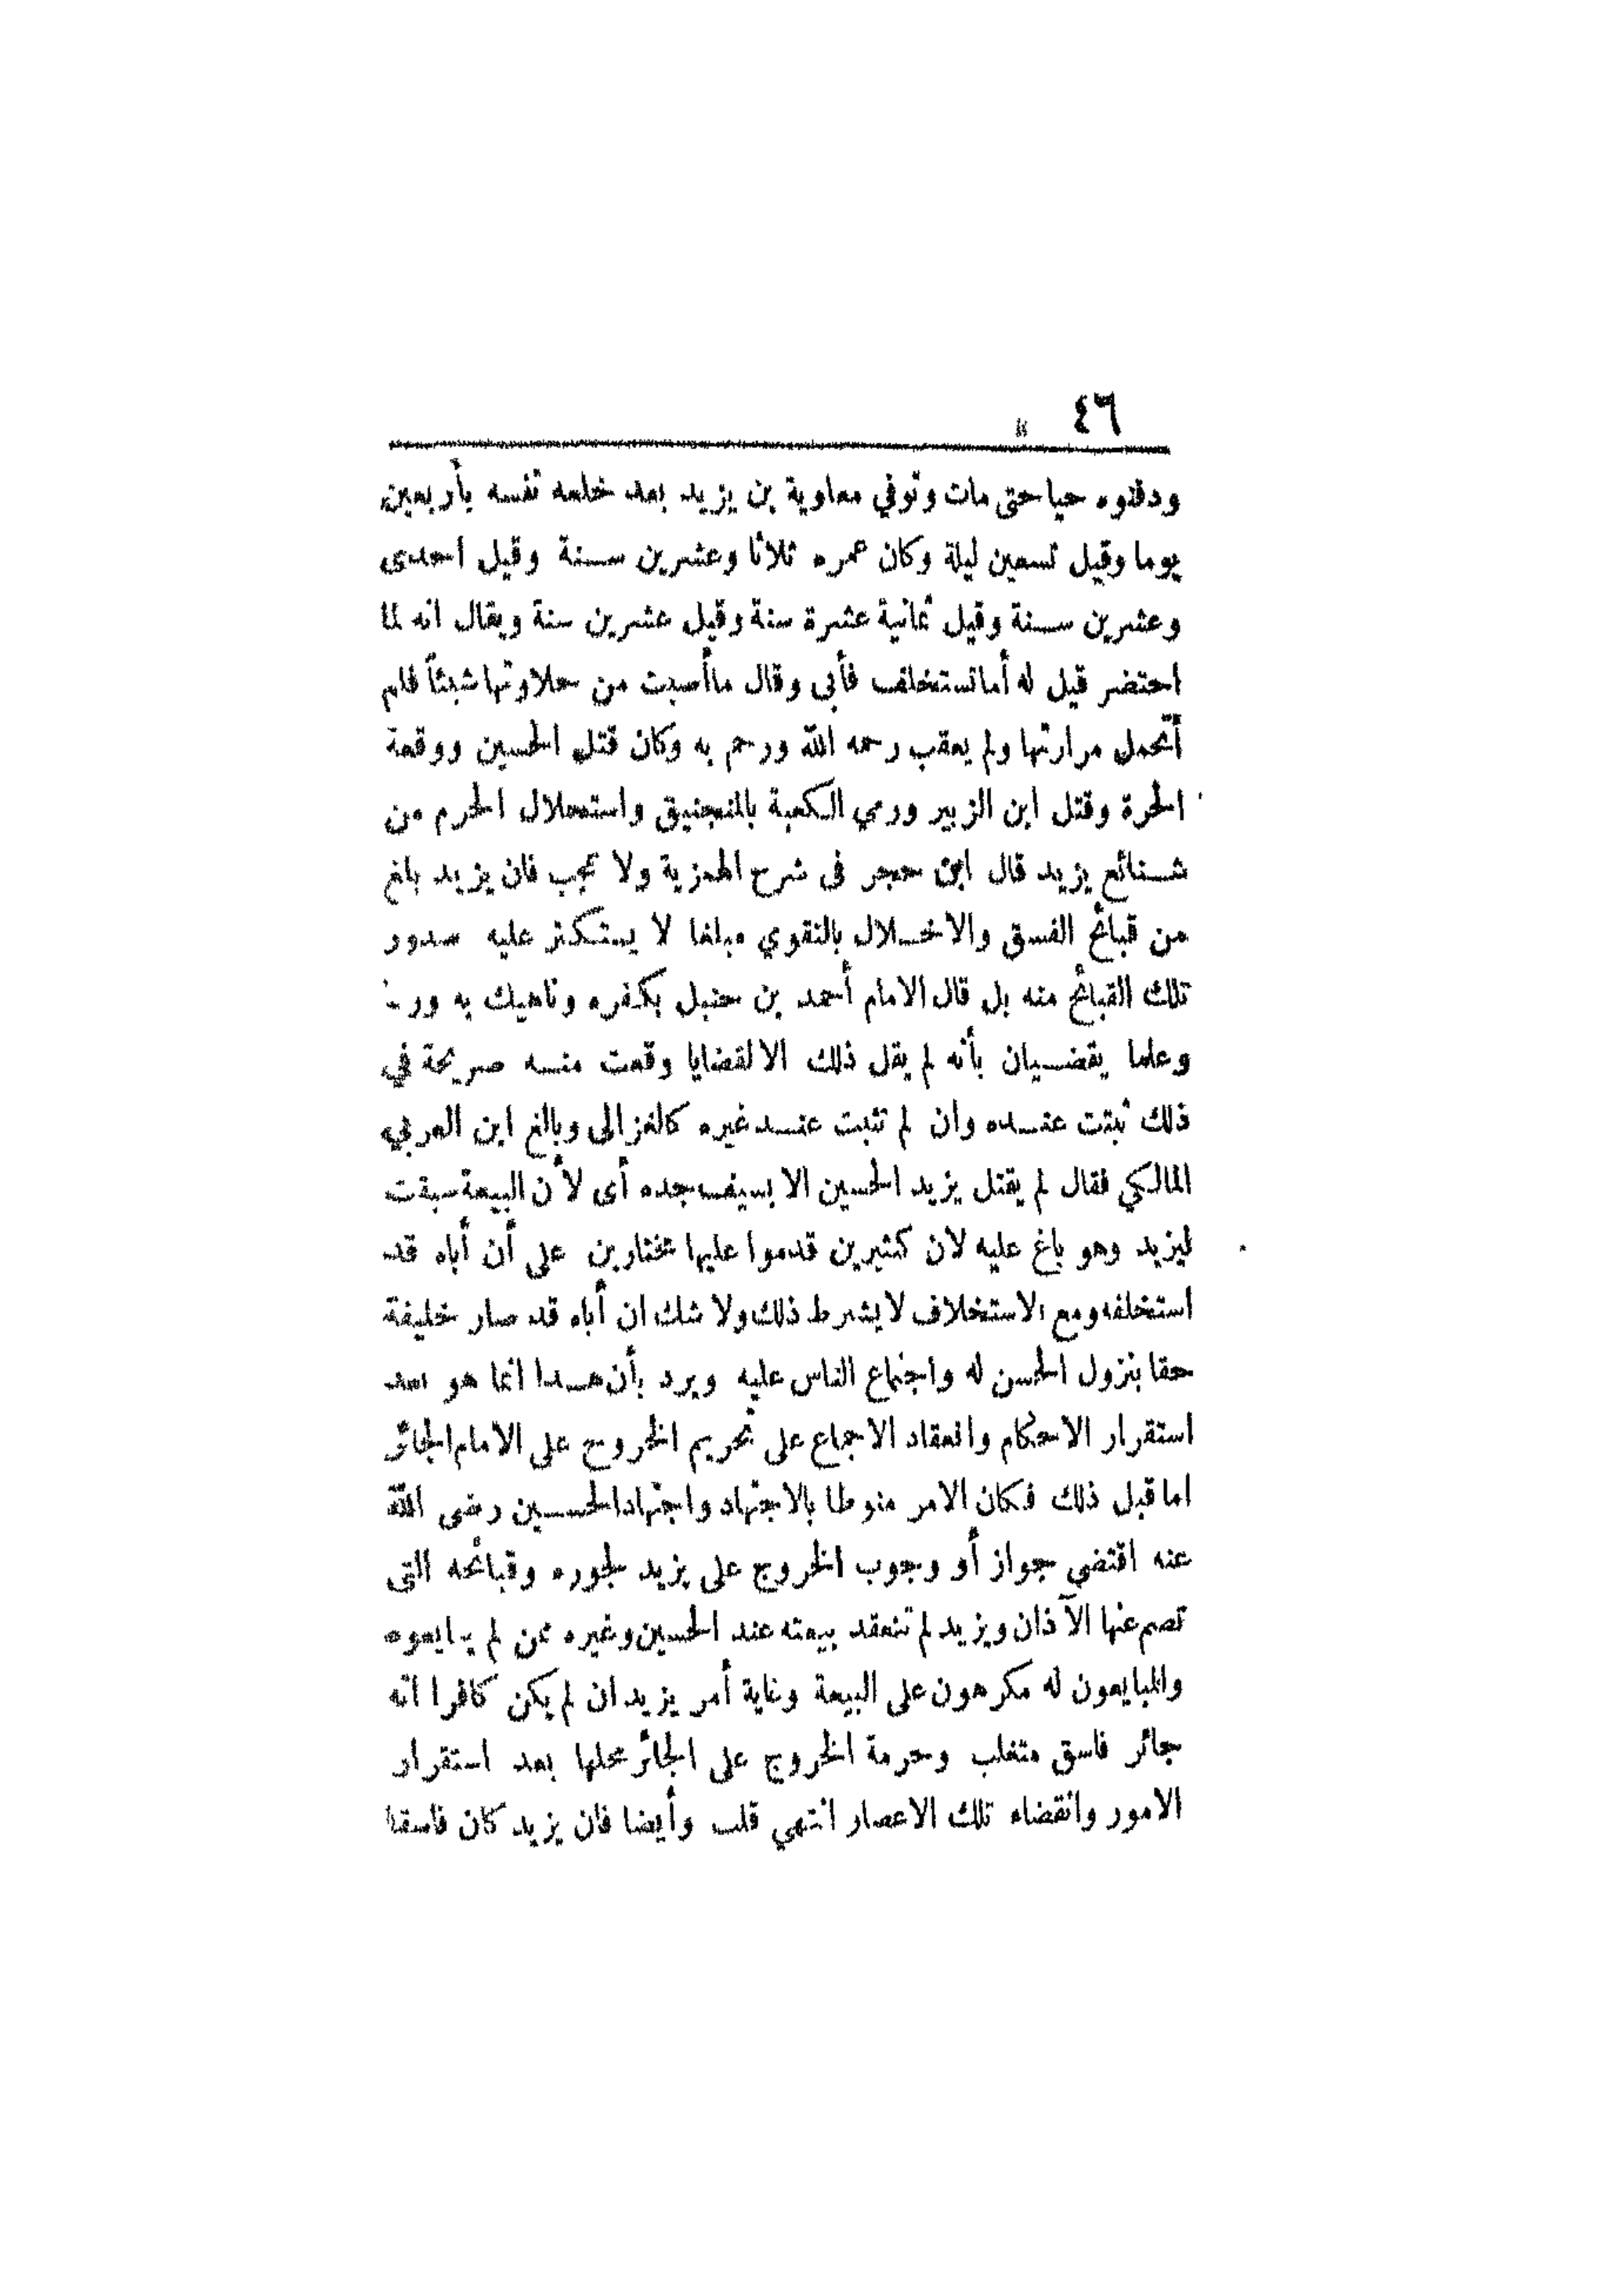 ٤٦
ودفنوه حيا حتى مات وتوفي معاوية بن يزيد بعد خلعه نفسه بأربعين
يوما وقيل تسعين ليلة وكان عمره ثلاثا وعشرين سنة وقيل احدى
وعشرين سنة وقيل ثمانية عشرة سنة وقيل عشرين سنة ويقال انه لما
احتضر قيل له أما تستخلف فأبى وقال ما أصبت من حلاوتها شيئاً فلم
أتحمل مرارتها ولم يعقب رحمه الله ورحم به وكان قتل الحسين ووقعة
الحرة وقتل ابن الزبير ورمي الكعبة بالمنجنيق واستحلال الحرم من
شنائع يزيد قال ابن حجر فى شرح الهمزية ولا عجب فان يزيد بلغ
من قبائح الفسق والاخلال بالتقوي مبلغا لا يستكثر عليه صدور
تلك القبائح منه بل قال الامام أحمد بن حنبل بكفره وناهيك به
وعلما يقضيان بأنه لم يقل ذلك الا لقضايا وقعت منه صريحة في
ذلك ثبتت عنده وان لم تثبت عند غيره كالغزالى وبالغ ابن العربي
المالكي فقال لم يقتل يزيد الحسين الا بسيف جده أى لأن البيعة سبقت
ليزيد وهو باغ عليه لان كثيرين قدموا عليها مختارين على أن أباه قد
استخلفه ومع الاستخلاف لا يشرط ذلك ولا شك ان أباه قد صار خليفة
حقا بنزول الحسن له واجتماع الناس عليه ويرد بأن هذا انما هو بعد
استقرار الاحكام وانعقاد الاجماع على تحريم الخروج على الامام الجائر
اما قبل ذلك فكان الامر منوطا بالاجتهاد واجتهاد الحسين رضى الله
عنه اقتضي جواز أو وجوب الخروج على يزيد لجوره وقبائحه التى
تصم عنها الآذان ويزيد لم تنعقد بيعته عند الحسين وغيره ممن لم يبايعوه
والمبايعون له مكرهون على البيعة وغاية أمر يزيد ان لم يكن كافرا انه
جائر فاسق متغلب وحرمة الخروج على الجائر محلها بعد استقرار
الامور وانقضاء تلك الاعصار انتهي قلت وأيضا فان يزيد كان فاسقا